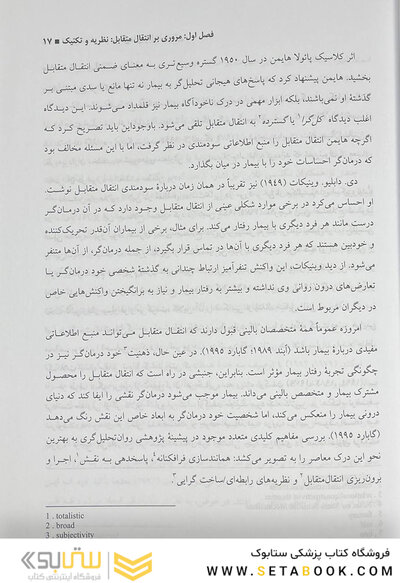 فصل اول: مروری بر انتقال متقابل: نظریه و تکنیک ■ ۱۷
اثر کلاسیک پائولا هایمن در سال ۱۹۵۰ گستره وسیع‌تری به معنای ضمنی انتقال متقابل
بخشید. هایمن پیشنهاد کرد که پاسخ‌های هیجانی تحلیل‌گر به بیمار نه تنها مانع یا سدی مبتنی بر
گذشتهٔ او نمی‌باشند، بلکه ابزار مهمی در درک ناخودآگاه بیمار نیز قلمداد می‌شوند. این دیدگاه
اغلب دیدگاه کل‌گرا۱ یا گسترده۲ به انتقال متقابل تلقی می‌شود. باوجوداین باید تصریح کرد که
اگرچه هایمن انتقال متقابل را منبع اطلاعاتی سودمندی در نظر گرفت، اما با این مسئله مخالف بود
که درمان‌گر احساسات خود را با بیمار در میان بگذارد.
دی. دابلیو. وینیکات (۱۹۴۹) نیز تقریباً در همان زمان دربارهٔ سودمندی انتقال متقابل نوشت.
او احساس می‌کرد در برخی موارد شکلی عینی از انتقال متقابل وجود دارد که در آن درمان‌گر
درست مانند هر فرد دیگری با بیمار رفتار می‌کند. برای مثال، برخی از بیماران آن‌قدر تحریک‌کننده
و خودبین هستند که هر فرد دیگری با آن‌ها در تماس قرار بگیرد، از جمله درمان‌گر، از آن‌ها متنفر
می‌شود. از دید وینیکات، این واکنش تنفرآمیز ارتباط چندانی به گذشتهٔ شخصی خود درمان‌گر یا
تعارض‌های درون روانی وی نداشته و بیشتر به رفتار بیمار و نیاز به برانگیختن واکنش‌هایی خاص
در دیگران مربوط است.
امروزه عموماً همهٔ متخصصان بالینی قبول دارند که انتقال متقابل می‌تواند منبع اطلاعاتی
مفیدی دربارهٔ بیمار باشد (آبند ۱۹۸۹؛ گابارد ۱۹۹۵). در عین حال، ذهنیت۳ خود درمان‌گر نیز در
چگونگی تجربهٔ رفتار بیمار مؤثر است. بنابراین، جنبشی در راه است که انتقال متقابل را محصول
مشترک بیمار و متخصص بالینی می‌داند. بیمار موجب می‌شود درمان‌گر نقشی را ایفا کند که دنیای
درونی بیمار را منعکس می‌کند، اما شخصیت خود درمان‌گر به ابعاد خاص این نقش رنگ می‌دهد
(گابارد ۱۹۹۵). بررسی مفاهیم کلیدی متعدد موجود در پیشینهٔ پژوهشی روان‌تحلیل‌گری به بهترین
نحو این درک معاصر را به تصویر می‌کشد: همانندسازی فرافکنانه۴، پاسخدهی به نقش، اجرا و
برون‌ریزی انتقال‌متقابل و نظریه‌های رابطه‌ای/ساخت گرایی.
1 . totalistic
2 . broad
3 . subjectivity
فروشگاه کتاب پزشکی ستابوک
WWW.SETABOOK.COM
ستابوک
فروشگاه اینترنتی کتاب